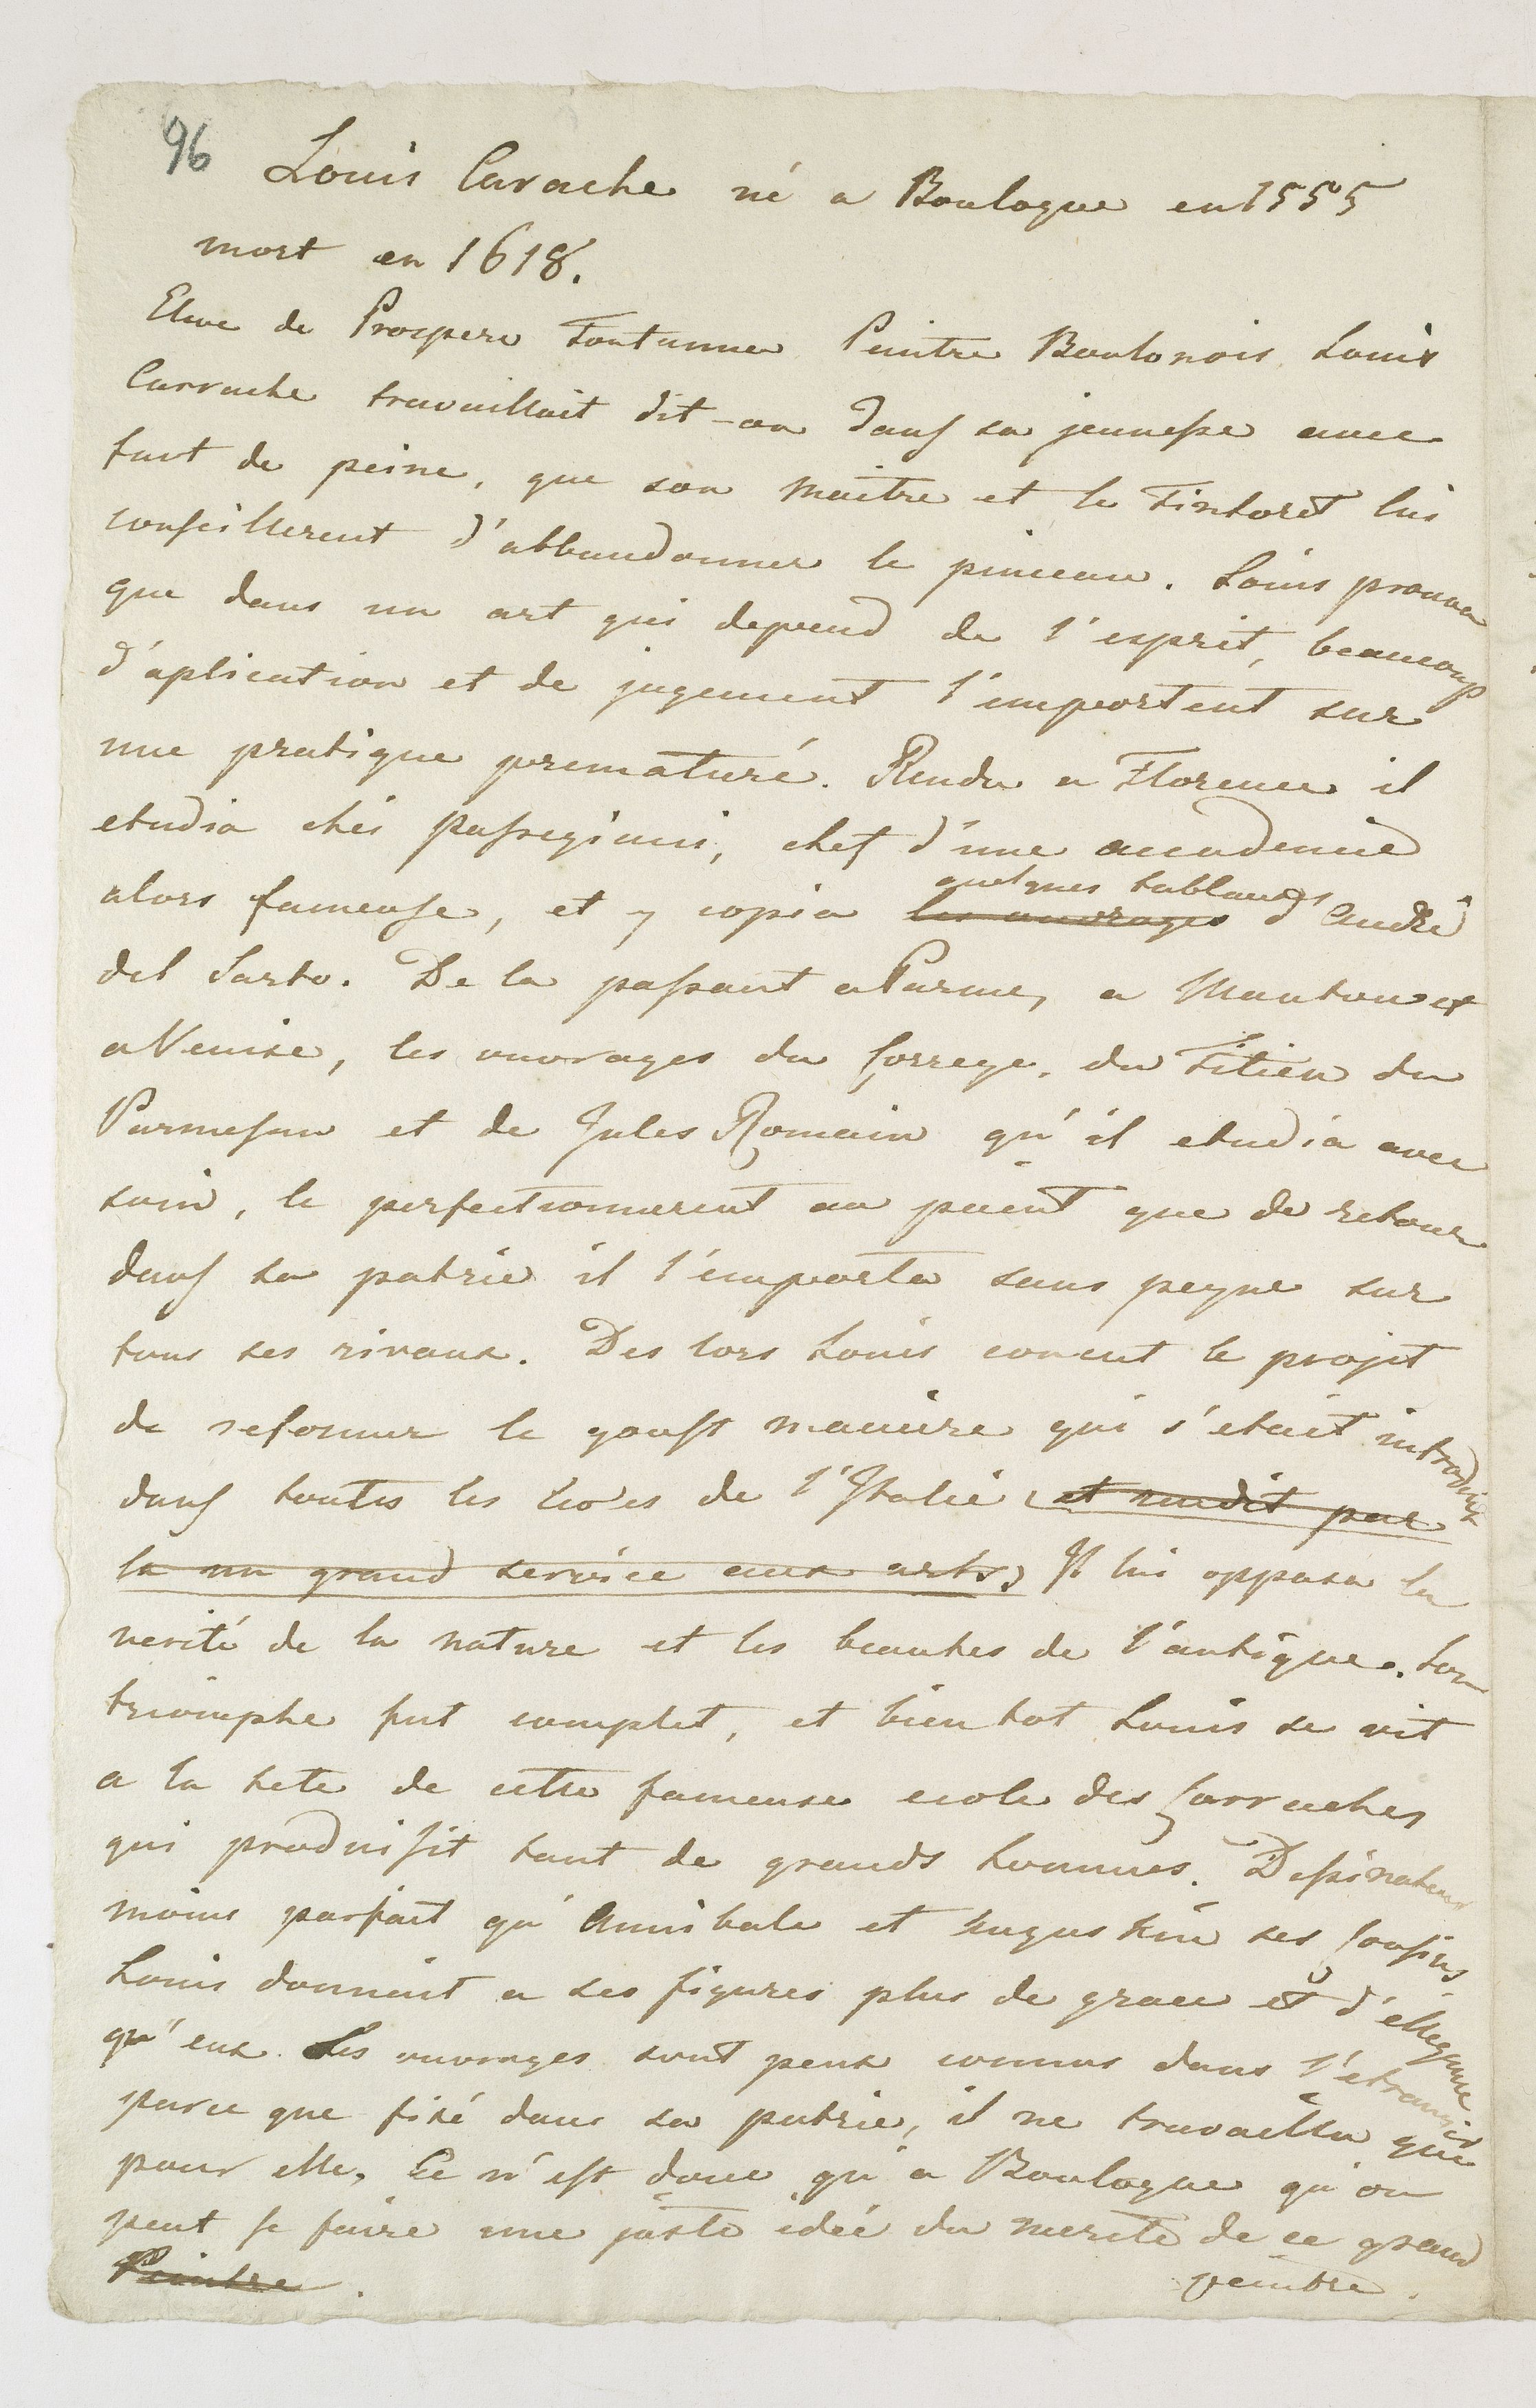 96 Louis Carache né a Boulogne en 1555
mort en 1618.
Eleve de Prospero Fontanna Peintre Boulonois Louis
Carrache travaillait dit-on dans sa jeunesse avec
tant de peine, que son maitre et le Tintoret lui
conseillerent d'abbandonner le pinceau. Louis prouva
que dans un art qui depend de l'esprit, beaucoup
d'aplication et de jugement l'emportent sur
une pratique prematuré. Rendu a Florence il
etudia chés Passegiani, chef d'une accademie
quelques tableaux
alors fameuse, et y copia les ouvrages d'André
del Sarto. De la passant a Parme, a Mantoue et
a Venise, les ouvrages du Correge, du Titien du
Parmesan et de Jules Romain qu'il etudia avec
soin, le perfectionnerent au point que de retour
dans sa patrie il l'emporta sans peyne sur
tous ses rivaux. Des lors Louis concut le projet
de reformer le goust maniere qui s'etait introduit
dans toutes les Ecoles de l'Italie et rendit par
la un grand service aux arts. Il lui opposa la
verité de la nature et les beautes de l'antique. Son
triomphe fut complet, et bientot Louis se vit
a la tete de cette fameuse ecole des Carraches
qui produisit tant de grands hommes. Dessinateur
moins parfait qu'Annibale et Augustin ses Cousins
Louis donnait a ses figures plus de grace et d'ellegance
qu'eux. Ses ouvrages sont peux connus dans l'etranger
parce que fixé dans sa patrie, il ne travailla que
pour elle, Ce n'est donc qu'a Boulogne qu'on
peut se faire une juste idée du merite de ce grand
Peintre. peintre.